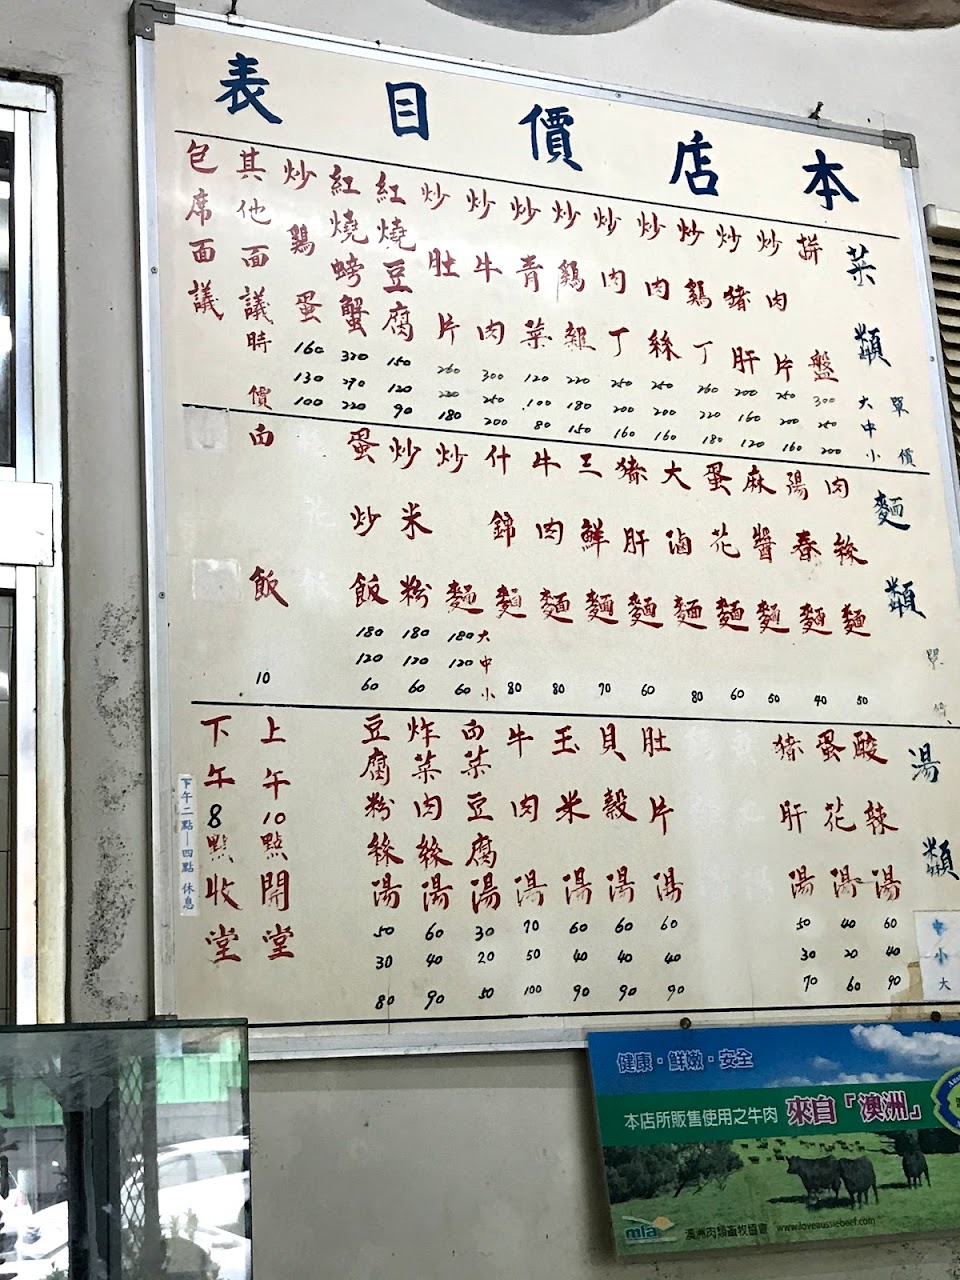 本店價目表
菜類 單價 大 中 小
拼盤 300 250 200
炒肉片 250 200 160
炒豬肝 200 160 120
炒鷄丁 260 220 180
炒肉絲 250 200 160
炒肉丁 250 200 160
炒鷄雜 220 180 150
炒青菜 120 100 80
炒牛肉 300 250 200
炒肚片 260 220 180
紅燒豆腐 150 120 90
紅燒螃蟹 320 290 220
炒鷄蛋 160 130 100
其他面議時價
包席面議
麵類 單價
肉絲麵 50
湯春麵 40
麻醬麵 50
蛋花麵 60
大滷麵 80
豬肝麵 60
三鮮麵 70
牛肉麵 80
什錦麵 80
大 中 小
炒麵 180 120 60
炒米粉 180 120 60
蛋炒飯 180 120 60
白飯 10
湯類
中 小 大
酸辣湯 60 40 90
蛋花湯 40 20 60
豬肝湯 50 30 70
肚片湯 60 40 90
貝穀湯 60 40 90
玉米湯 60 40 90
牛肉湯 70 50 100
白菜豆腐湯 30 20 50
炸菜肉絲湯 60 40 90
豆腐粉絲湯 50 30 80
上午10點開堂
下午8點收堂
下午二點—四點 休息
健康・鮮嫩・安全
本店所販售使用之牛肉 來自「澳洲」
mla 澳洲肉類畜牧協會 www.loveaussiebeef.com